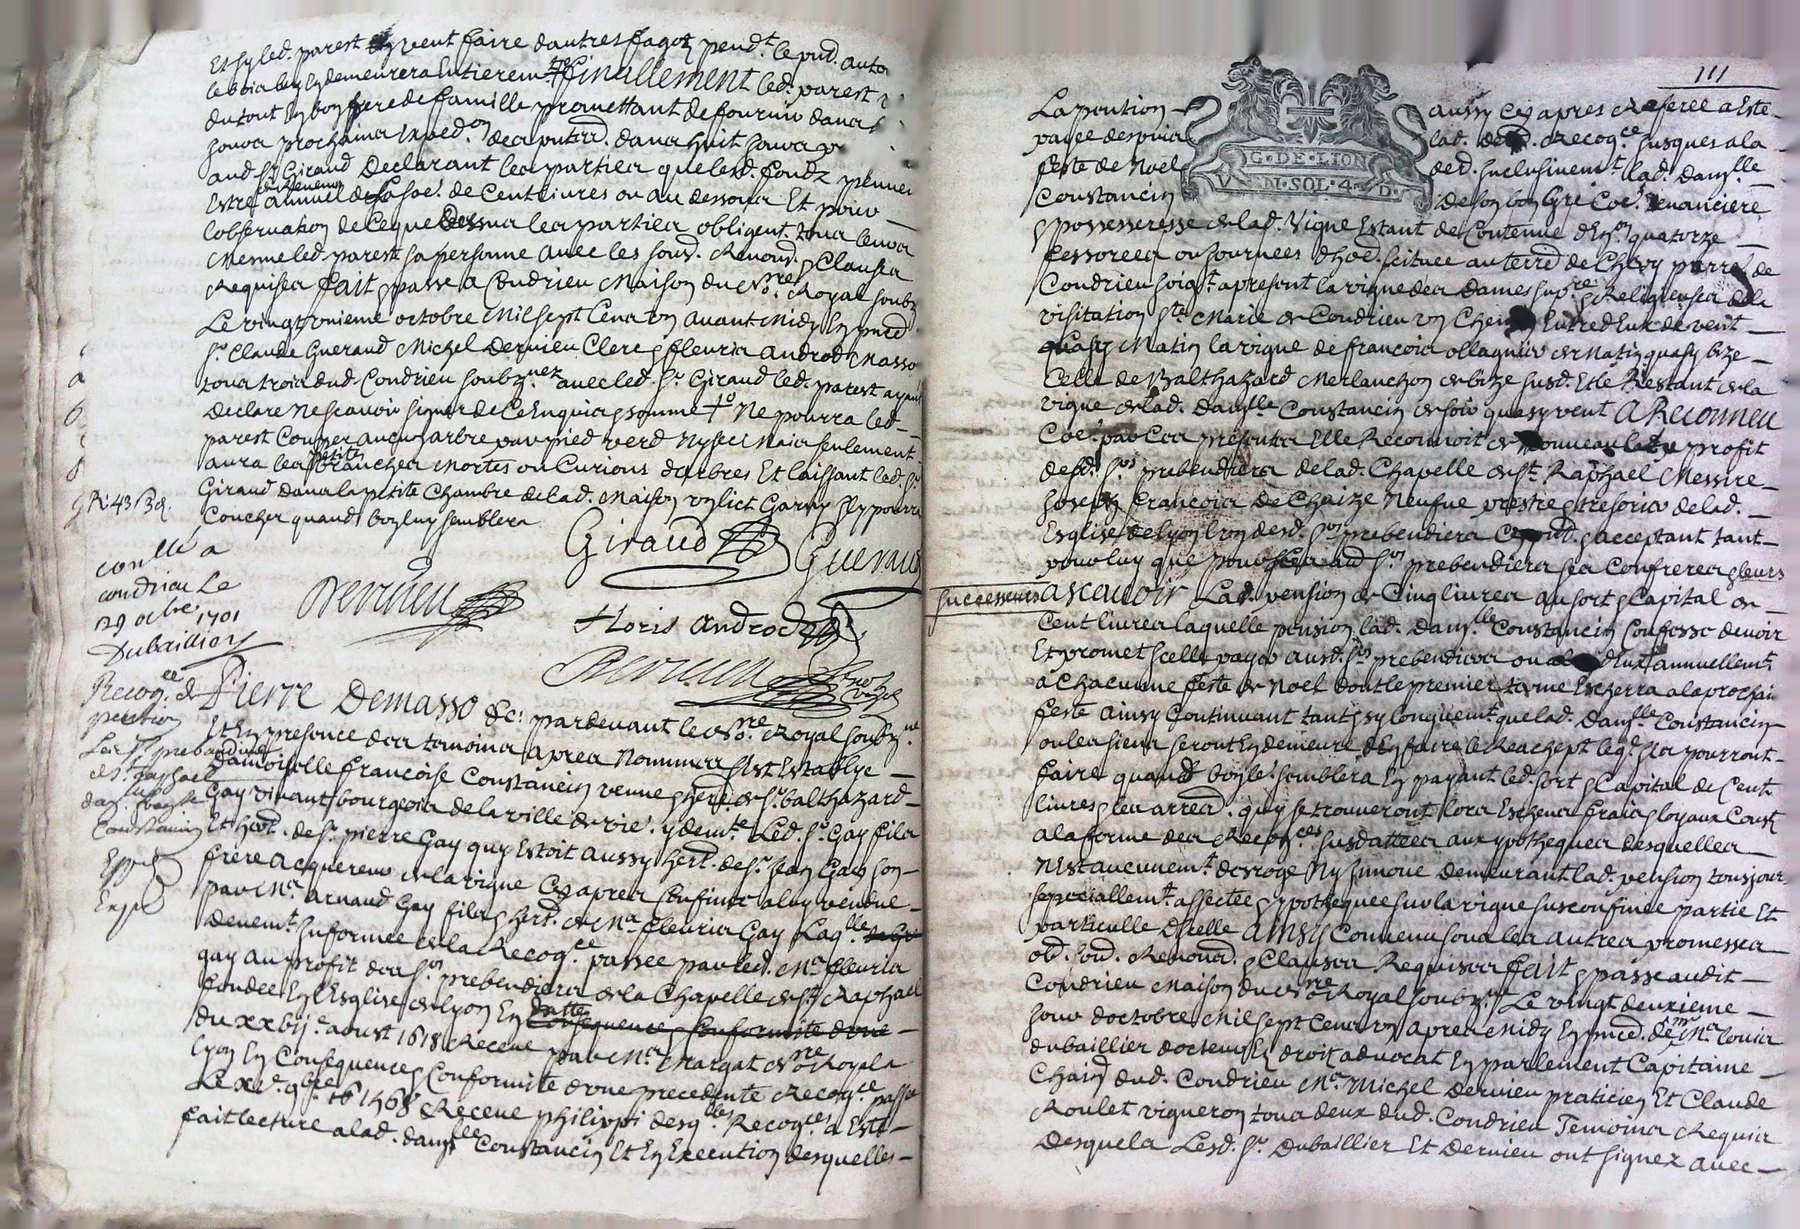 Et sy led. parest y veut faire dautres fagotz pend.t le pnt. auto
le bois luy en demeurera Entierem.t finallement led. parest
du tout en bon pere de famille promettant de fournir dans
jours prochains Exped.on des puttes. dans huit jours
aud s.r Giraud Declarant les parties que lesd. fondz
Estre En Revenu annuel de la so.e de Cent livres ou au dessous Et pour
lobservation de Ceque Dessus les parties obligent tous leurs
Mesme led. parest sa personne avec les soud. Renond. & Clauses
Requises fait & passe a Condrieu Maison du No.re Royal soubz
Le vingt unieme octobre Mil sept Cens un avant Midy En pnce
s.r Claude Gueraud Michel Dervieu Clerc & fleuris androd Masso
tous trois dud. Condrieu soubz.nez avec led. s.r Giraud led. parest ayant
Declare Ne scavoir signer de Ce Enquis & somme Ne pourra led.
parest Couper aucun arbre par pied verd Ny sec Mais seulement
aura les petites branches Mortes ou Curions darbres Et laissant led. s.r
Giraud dans la petite Chambre de lad. Maison un lict Garny sy pourra
Coucher quand bon luy semblera
R: 43 s 3 d.
Giraud
Gueraud
con.lle a
condrieu Le
29 octbre 1701
Dubaillier
Dervieu
Floris androd
Dervieu
No.re Royal
Recog.ce de
pention
Les s.rs prebendiers
de s.t Raphael
dam.lle françoise
Constancin
Expé
Expé
Pierre Demasso &c. pardevant le No.re Royal soubz.né
Et En presence des temoins apres Nommes s'est Establye
Damoiselle francoise Constancin veuve & herit. de s.r balthazard
Gay vivant bourgeois de la ville de vie. y dem.te Led. s.r Gay fils
Et herit. de s.r pierre Gay quy Estoit aussy herit. de s.r Jean Gay son
frere acquereur de la vigne Cy apres Confinee a luy vendue
par M.r arnaud Gay fils & herit. de M.e fleuris Gay Laq.lle
deuem.t Informee de la Recog.ce passee par led. M.e fleuris
gay au profit des s.rs prebendiers de la Chapelle de s.t Raphael
fondee En lEsglise de lyon En datte Consequence & Conformite dune
du xxbij.e aoust 1618 Receue par M.e Margat No.re Royal a
lyon En Consequence & Conformite dune precedente Recog.ce passee
Le xi.e 9bre 1568 Receue philippi desq.lles Recog.ces a Esté
fait lecture a lad. dam.lle Constancin Et En Execution desquelles
111
G · DE · LION
V N · SOL · 4 · D ·
La pention aussy Cy apres Referee a Esté
payee despuis lad. Recog.ce Jusques a la
feste de Noel der. Inclusivem.t lad. Dam.lle
Constancin De son bon Gré Coe. tenanciere
& possesseresse de lad. Vigne Estant de Contenue d'Env.on quatorze
fessorees ou Journees d'hoe. scituee au terr. de Chery parr. de
Condrieu Joig.t apresent la vigne des Dames sup.re & Religieuses de la
visitation s.te Marie de Condrieu un Chemin Entre deux de vent
quasy Matin la vigne de francois ollagnier de Matin quasy bize
Celle de Balthazard Merlanchon de bize susd. Et le Restant de la
vigne de lad. Dam.lle Constancin de soir quasy vent A Reconneu
Coe. par Ces presentes Elle Reconnoit de Nouveau au profit
desd. s.rs prebendiers de lad. Chapelle de s.t Raphael Messire
Joseph francois De Chaize Neufve prestre & tresorier de lad.
Esglise de lyon lun desd. s.rs prebendiers Cepnt. & acceptant tant
pour luy que pour lesd. s.rs prebendiers ses Confreres & leurs
successeurs ascavoir Lad. pension de Cinq livres au sort & Capital de
Cent livres laquelle pension lad. Dam.lle Constancin Confesse devoir
Et promet Icelle payer ausd. s.rs prebendiers ou a d'Eux annuellem.t
a Chacune feste de Noel dont le premier terme Escherra a la prochai
feste Ainsy Continuant tant & sy longuem.t que lad. Dam.lle Constancin
ou les siens seront En demeure d'En faire le Reachept leq.l Ils pourront
faire quand bon le. semblera En payant led. sort & Capital de Cent
livres & les arrer. quy se trouveront lors Escheus fraix & loyaux Cousts
a la forme des Recog.ces susdattees aux ypotheques desquelles
Nest aucunem.t desroge Ny Innové demeurant lad. pension tousjours
speciallem.t affectee & ypothequee sur la vigne susconfinee partie Et
particulle dIcelle Ainsy Convenu sous les autres promesses
obl. soud. Renond. & Clauses Requises fait & passe audit
Condrieu Maison du No.re Royal soubz.né Le vingt deuxieme
jour doctobre Mil sept Cens un apres Midy En pnce. de M.re Louis
dubaillier docteur Es droit advocat En parlement Capitaine
Chain dud. Condrieu M.e Michel Dervieu praticien Et Claude
Roulet vigneron tous deux dud. Condrieu Temoins Requis
Desquels Lesd. s.r Dubaillier Et Dervieu ont signez avec